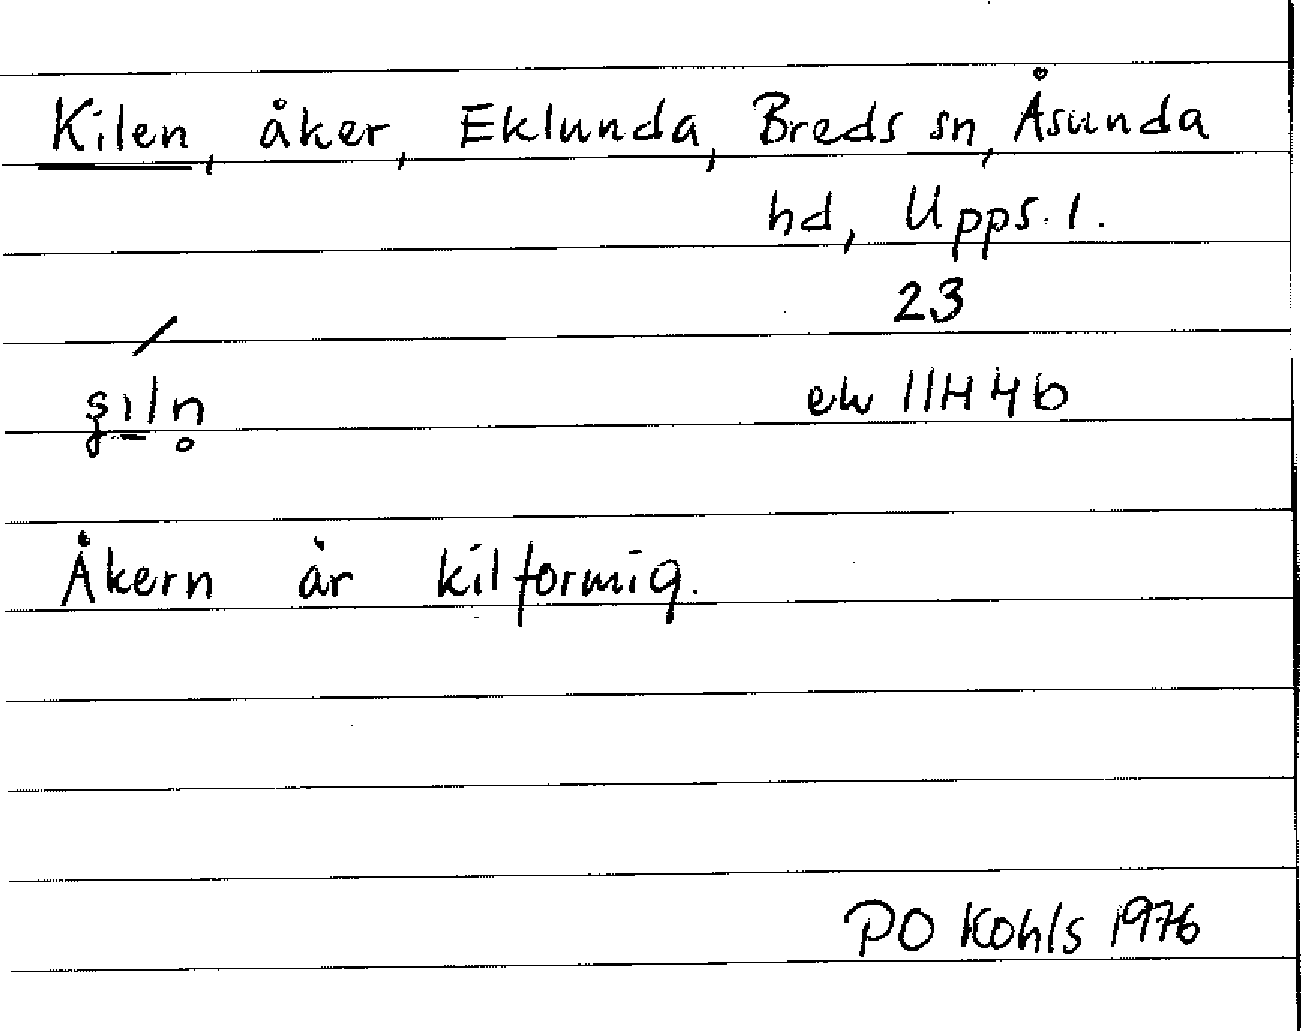 Kilen, åker, Eklunda, Breds sn, Åsunda
hd, Upps. l.
23
ek 11H4b
Åkern är kilformig.
PO Kohls 1976